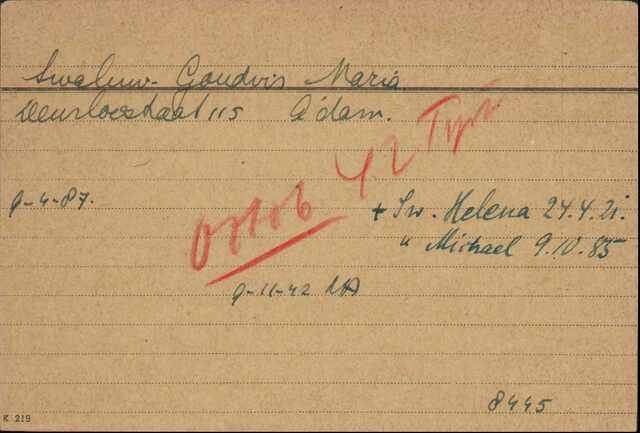 Swaluw-Goudvis Maria
Deurloostraat 115 A'dam.
Oktob 42 Typ.
9-4-87.
+ Sw. Helena 24.4.21.
" Michael 9.10.85
9-11-42 NA
8445
K 219